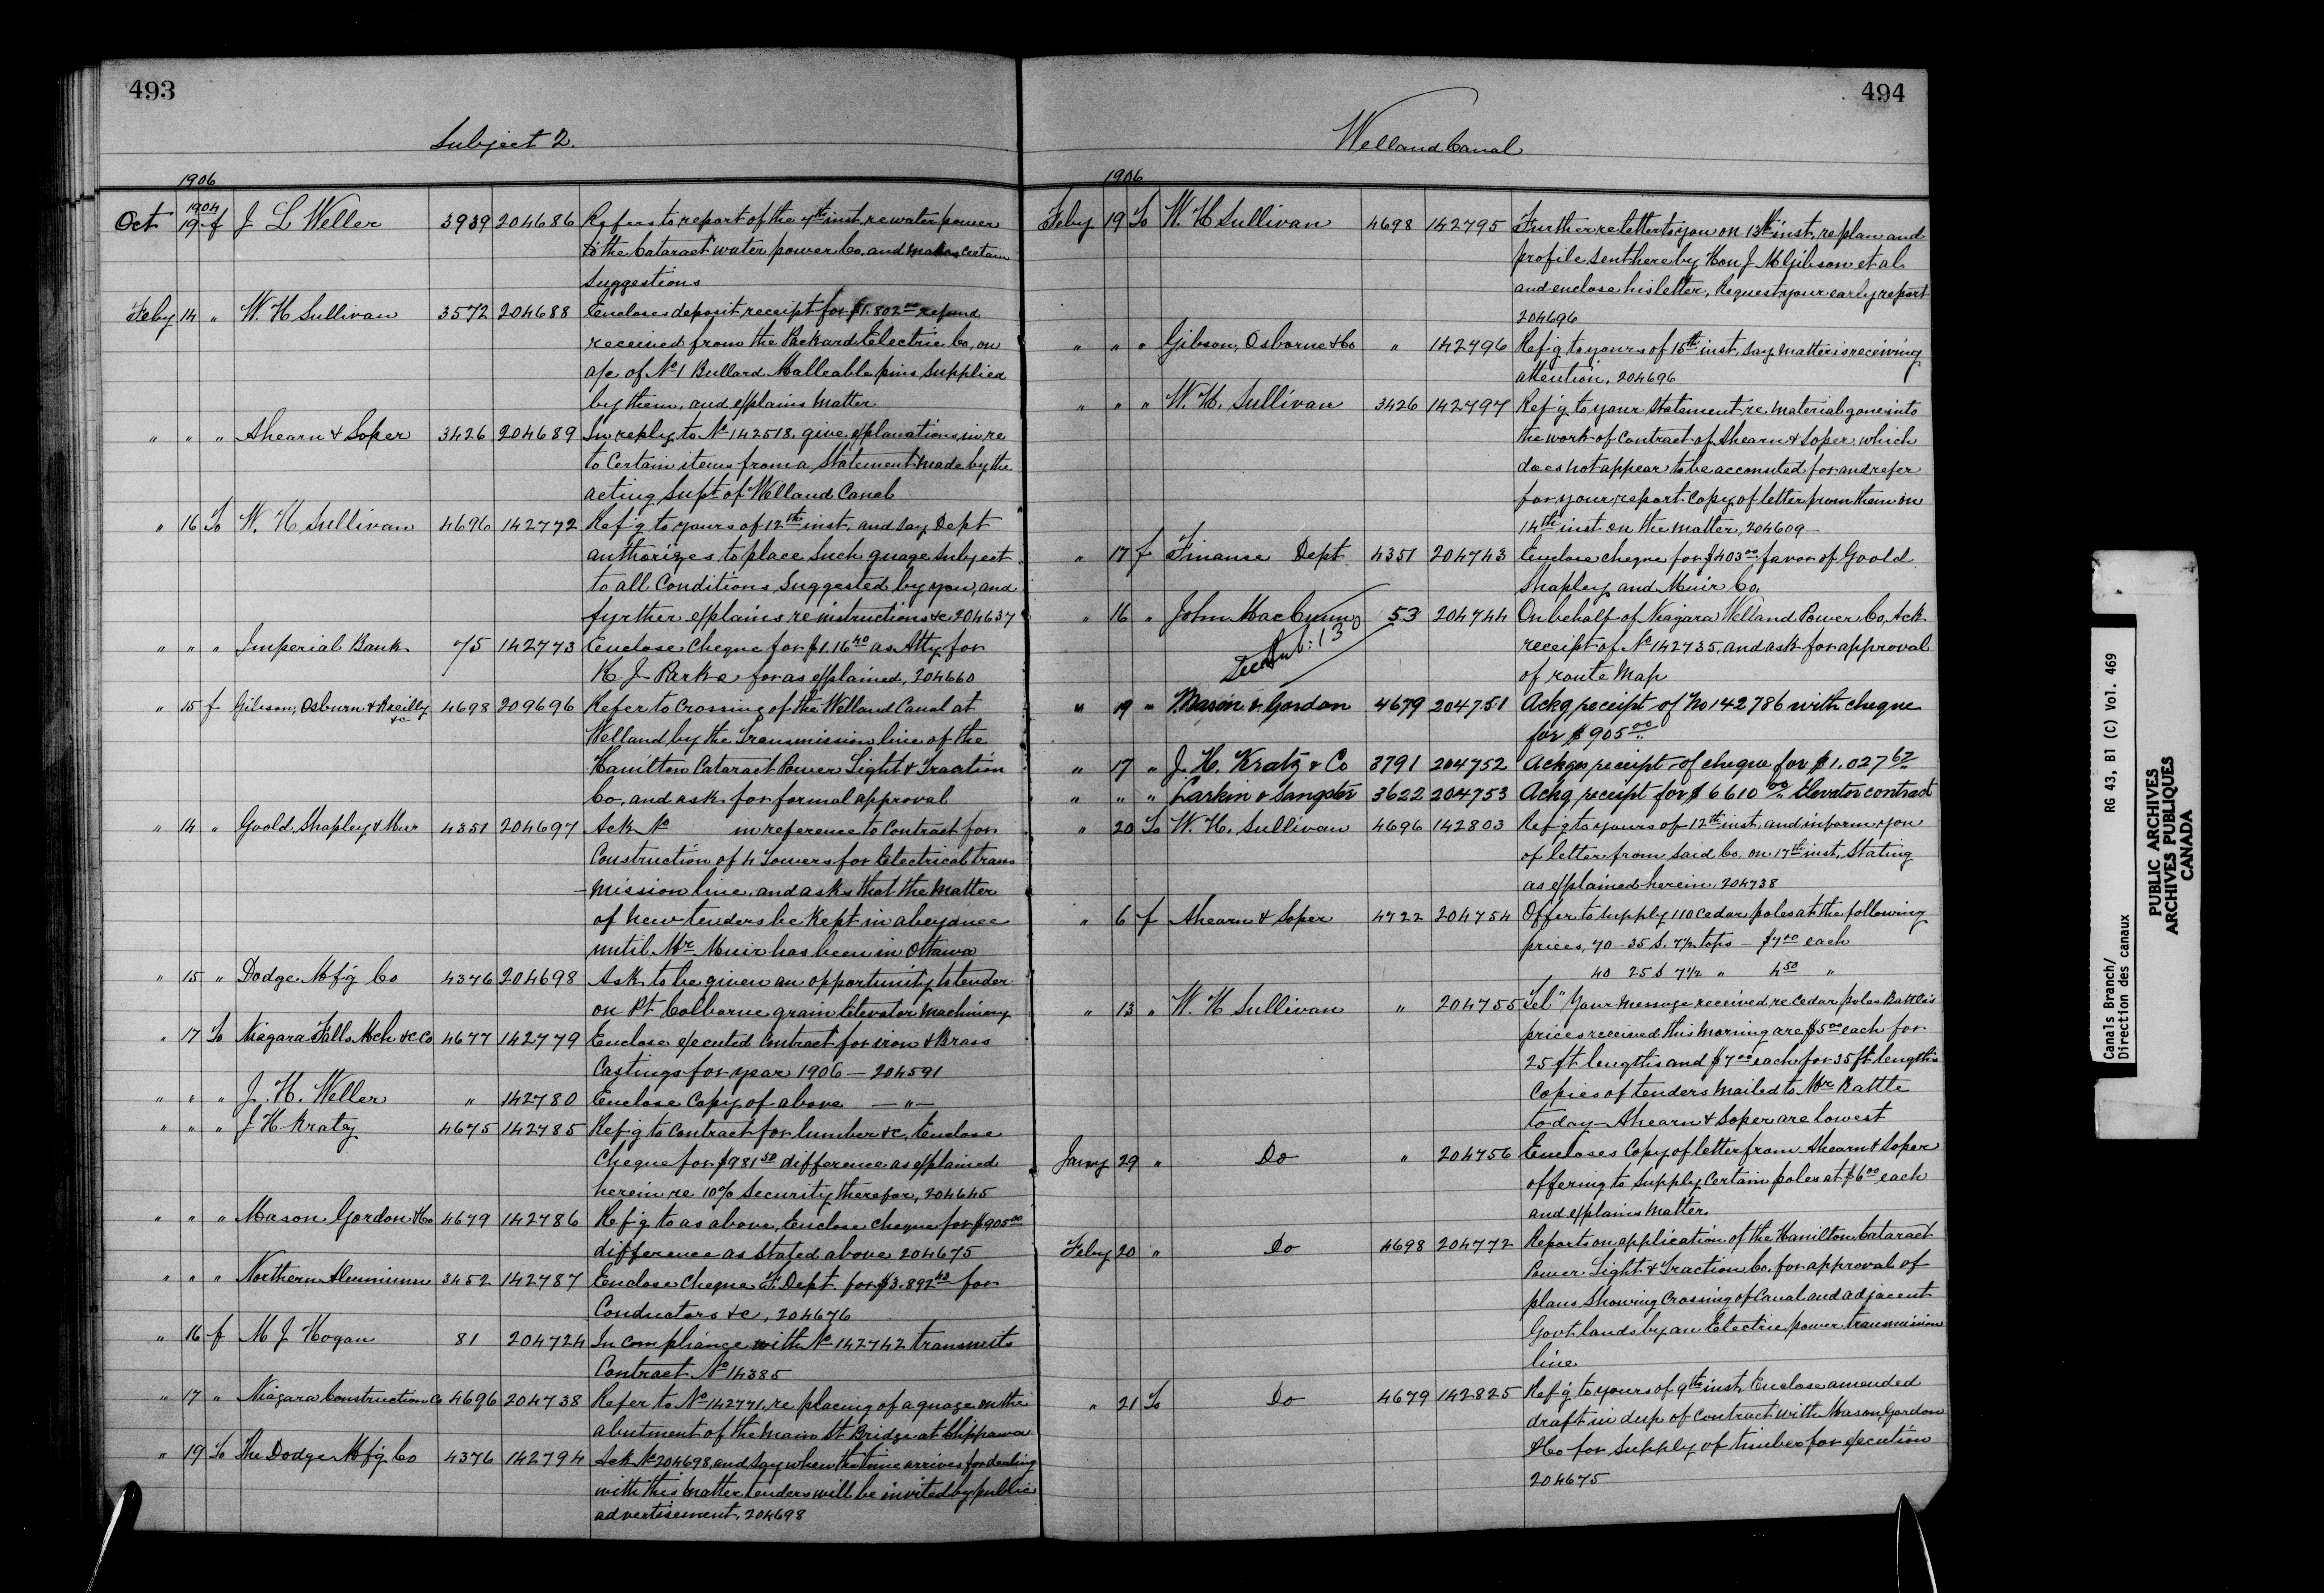 493
Subject 2.
1906
Oct 1904 19 f J L Weller 3939 204686 Refers to report of the 7th inst. re water power
to the Cataract water power Co. and makes certain
suggestions
Feby 14 " W. H Sullivan 3572 204688 Encloses deposit receipt for $1.802 00 refund
received from the Packard Electric Co, on
a/c of No 1 Bullard Malleable pins supplied
by them, and explains matter
" " " Ahearn & Soper 3426 204689 In reply to No 142518. give explanations in re
to certain items from a statement made by the
acting Supt of Welland Canal
" 16 To W. H Sullivan 4696 142772 Ref'g to yours of 12th inst. and say Dept
authorizes to place such guage subject
to all conditions suggested by you, and
further explains re instructions &c 204637
" " " Imperial Bank 75 142773 Enclose cheque for $1.16 40 as Atty for
K J Parks for as explained, 204660
" 15 f Gibson, Osburn & Reilly &c 4698 209696 Refer to crossing of the Welland Canal at
Welland by the Transmission line of the
Hamilton Cataract Power Light & Traction
Co, and ask for formal approval
" 14 " Goold, Shapley & Mur 4351 204697 Ack No in reference to contract for
Construction of 4 Towers for Electrical trans
-mission line, and asks that the matter
of new tenders be kept in abeyance
until Mr Muir has been in Ottawa
" 15 " Dodge Mf'g Co 4376 204698 Ask to be given an opportunity to tender
on Pt Colborne grain Elevator machinery
" 17 To Niagara Falls Mch &c Co 4677 142779 Enclose executed Contract for iron & Brass
Castings for year 1906 — 204591
" " " J. H. Weller " 142780 Enclose Copy of above — " —
" " " J H Kratz 4675 142785 Ref'g to contract for lumber &c, Enclose
cheque for $981 50 difference as explained
herein re 10% security therefor, 204645
" " " Mason Gordon & Co 4679 142786 Ref'g to as above, Enclose cheque for $905 00
difference as stated above 204675
" " " Northern Aluminum 3452 142787 Enclose cheque F. Dept. for $3.892 43 for
Conductors &c, 204676
" 16 f M J Hogan 81 204724 In compliance with No 142742 transmits
Contract No 14385
" 17 " Niagara Construction Co 4696 204738 Refer to No 142771, re placing of a guage on the
abutment of the Main St Bridge at Chippawa
" 19 To The Dodge Mf'g Co 4376 142794 Ack No 204698, and say when the time arrives for dealing
with this matter tenders will be invited by public
advertisement. 204698
494
Welland Canal
1906
Feby 19 To W. H Sullivan 4698 142795 Further re letter to you on 13th inst. re plan and
profile sent here by Hon J M Gibson et al.
and enclose his letter, Request your early report
204696
" " " Gibson, Osborne & Co " 142796 Ref'g to yours of 15th inst. say matter is receiving
attention. 204696
" " " W. H. Sullivan 3426 142797 Ref'g to your statement re. material gone into
the work of contract of Ahearn & Soper which
does not appear to be accounted for and refer
for your report copy of letter from them on
14th inst on the matter, 204609 —
" 17 f Finance Dept 4351 204743 Enclose cheque for $403 00 favor of Goold
Shapley and Muir Co.
" 16 " John MacCunn 53 204744 On behalf of Niagara Welland Power Co, Ack
See Sub: 130
receipt of No 142735, and ask for approval
of route Map
" 19 " Mason & Gordon 4679 204751 Ackg receipt of No 142786 with cheque
for $905 00
" 17 " J. H. Kratz & Co 3791 204752 Ackgs receipt of cheque for $1.027 62
" " " Larkin & Sangster 3622 204753 Ackg receipt for $6610 00 Elevator contract
" 20 To W. H. Sullivan 4696 142803 Ref'g to yours of 12th inst. and inform you
of letter from said Co, on 17th inst. stating
as explained herein 204738
" 6 f Ahearn & Soper 4722 204754 Offer to supply 110 cedar poles at the following
prices, 70 – 35 f. 7½ tops — $7 00 each
40 25 f 7½ " 4 50 "
" 13 " W. H Sullivan " 204755 Tel " Your message received re cedar poles Battle's
prices received this morning are $5 00 each for
25 ft lengths and $7 00 each for 35 ft lengths
Copies of tenders mailed to Mr Battle
to day – Ahearn & Soper are lowest
Janry 29 " Do " 204756 Encloses Copy of letter from Ahearn & Soper
offering to supply certain poles at $6 00 each
and explains matter
Feby 20 " Do 4698 204772 Reports on application of the Hamilton Cataract
Power Light & Traction Co. for approval of
plans showing crossing of Canal and adjacent
Govt. lands by an Electric power transmission
line
" 21 To Do 4679 142825 Ref'g to yours of 9th inst, Enclose amended
draft in dup of contract with Mason, Gordon
& Co for supply of timber for execution
204675
Canals Branch/
Direction des canaux
RG 43, B1 (C) Vol. 469
PUBLIC ARCHIVES
ARCHIVES PUBLIQUES
CANADA